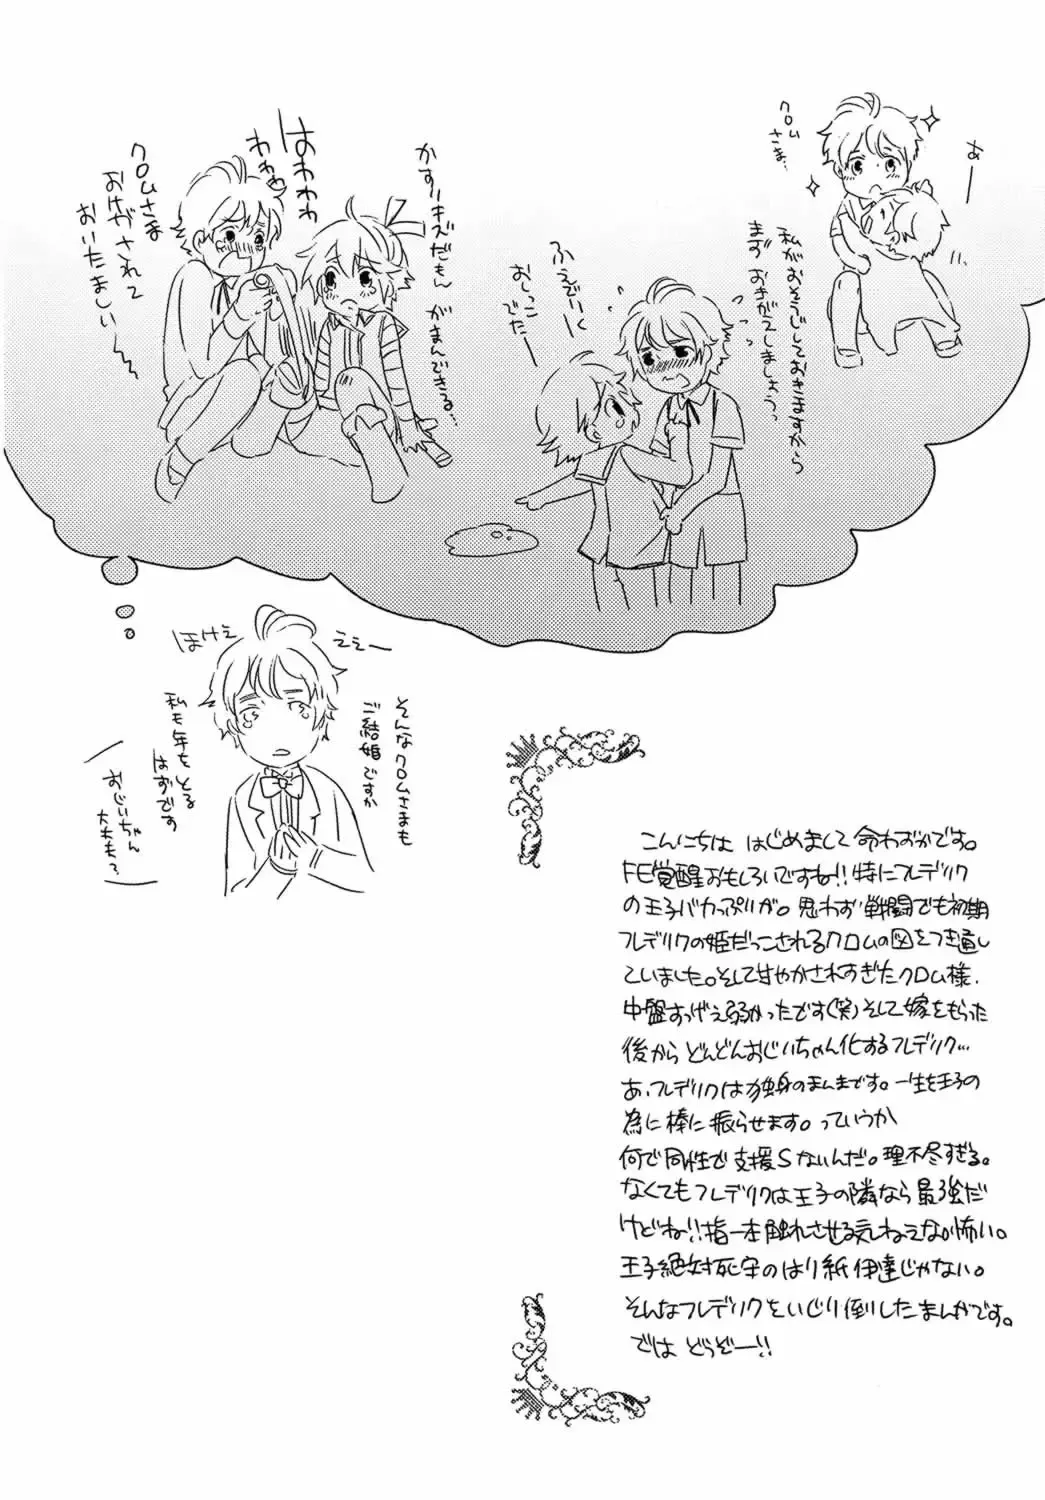 クロム
さま…
あー
私がおそうじしておきますから
まず おきがえしましょうっ
ふぇでぃく
おしっこ
でた
かすりキズだもん がまんできる…
はわわわ
わわわ
クロムさま
おけがされて
おいたましい
ほけぇ
ええー
そんなクロムさまも
ご結婚ですか
私も年をとる
はずです
おじいちゃん
大丈夫?
こんにちは はじめまして 命わおかです。
FE覚醒おもしろいですね!! 特にフレデリク
の王子バカっぷりが。思わず戦闘でも初期
フレデリクの姫だっこされるクロムの図をつき通し
ていました。そして甘やかされすぎたクロム様、
中盤すっげぇ弱かったです(笑)そして嫁をもらった
後から どんどんおじいちゃん化するフレデリク…
あ、フレデリクは独身のまんまです。一生を王子の
為に棒に振らせます。っていうか
何で同性で支援Sないんだ。理不尽すぎる。
なくてもフレデリクは王子の隣なら最強だ
けどね!!指一本触れさせる気ねぇなか怖い。
王子絶対死守のはり紙伊達じゃない。
そんなフレデリクをいじり倒したまんがです。
では どうぞー!!